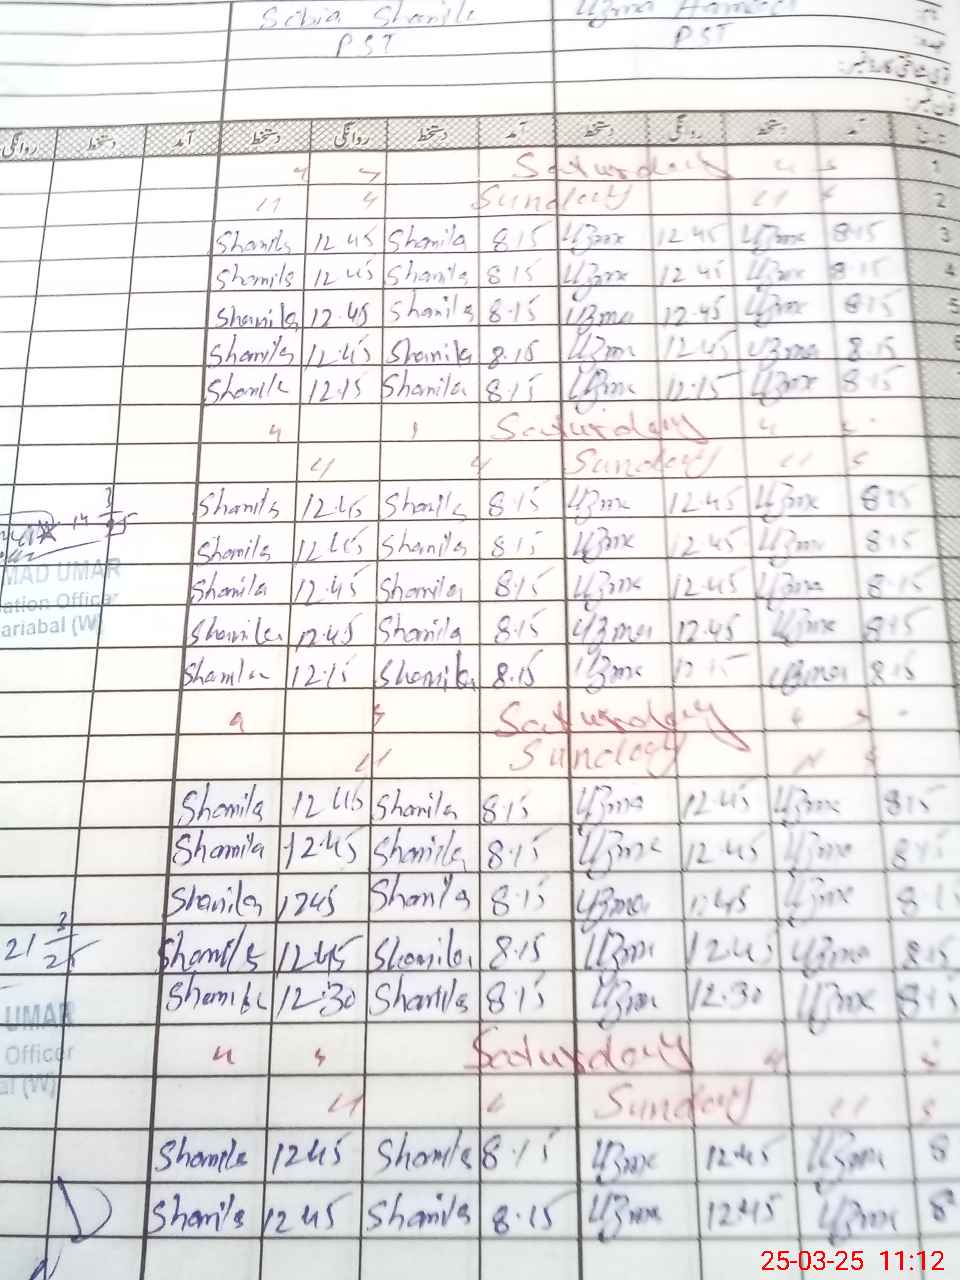 Sobia Shamila
Uzma Hameed
PST
PST
روانگی دستخط آمد دستخط روانگی دستخط آمد دستخط روانگی دستخط آمد
Saturday 1
Sunday 2
Shamila 12 45 Shamila 8 15 Uzma 12 45 Uzma 8.15 3
Shamila 12 45 Shamila 8 15 Uzma 12 45 Uzma 8.15 4
Shamila 12.45 Shamila 8.15 Uzma 12.45 Uzma 8.15 5
Shamila 12.45 Shamila 8.15 Uzma 12.45 Uzma 8.15 6
Shamila 12.15 Shamila 8.15 Uzma 12.15 Uzma 8.15
Saturday
Sunday
Shamila 12.45 Shamila 8.15 Uzma 12.45 Uzma 8 15
Shamila 12 45 Shamila 8.15 Uzma 12.45 Uzma 8.15
Shamila 12.45 Shamila 8.15 Uzma 12.45 Uzma 8.15
Shamila 12.45 Shamila 8.15 Uzma 12.45 Uzma 8.15
Shamila 12.15 Shamila 8.15 Uzma 12.15 Uzma 8.15
Saturday
Sunday
Shamila 12 45 Shamila 8.15 Uzma 12.45 Uzma 8.15
Shamila 12.45 Shamila 8.15 Uzma 12.45 Uzma 8.15
Shamila 1245 Shamila 8.15 Uzma 12.45 Uzma 8.15
Shamila 12.45 Shamila 8.15 Uzma 12.45 Uzma 8.15
Shamila 12.30 Shamila 8.15 Uzma 12.30 Uzma 8.15
Saturday
Sunday
Shamila 1245 Shamila 8.15 Uzma 12.45 Uzma 8
Shamila 12 45 Shamila 8.15 Uzma 12.45 Uzma 8
14 3 25
MAD UMAR
ation Officer
ariabal (W)
21 3 25
UMAR
Officer
al (W)
25-03-25 11:12